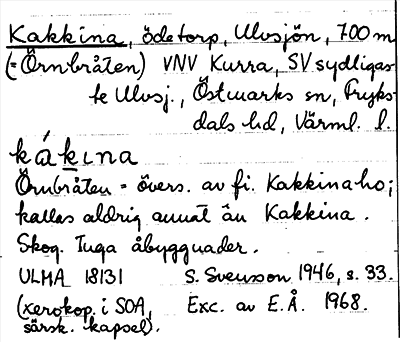 Kakkina, ödetorp, Ulvsjön, 700 m
(=Örnbråten) VNV Kurra, SV sydligas-
te Ulvsj., Östmarks sn, Fryks-
dals hd, Värml. l.
kákına
Örnbråten = övers. av fi. Kakkinaho;
kallas aldrig annat än Kakkina.
Skog. Inga åbyggnader.
ULMA 18131 S. Svensson 1946, s. 33.
(xerokop. i SOA, Exc. av E.Å. 1968.
särsk. kapsel).